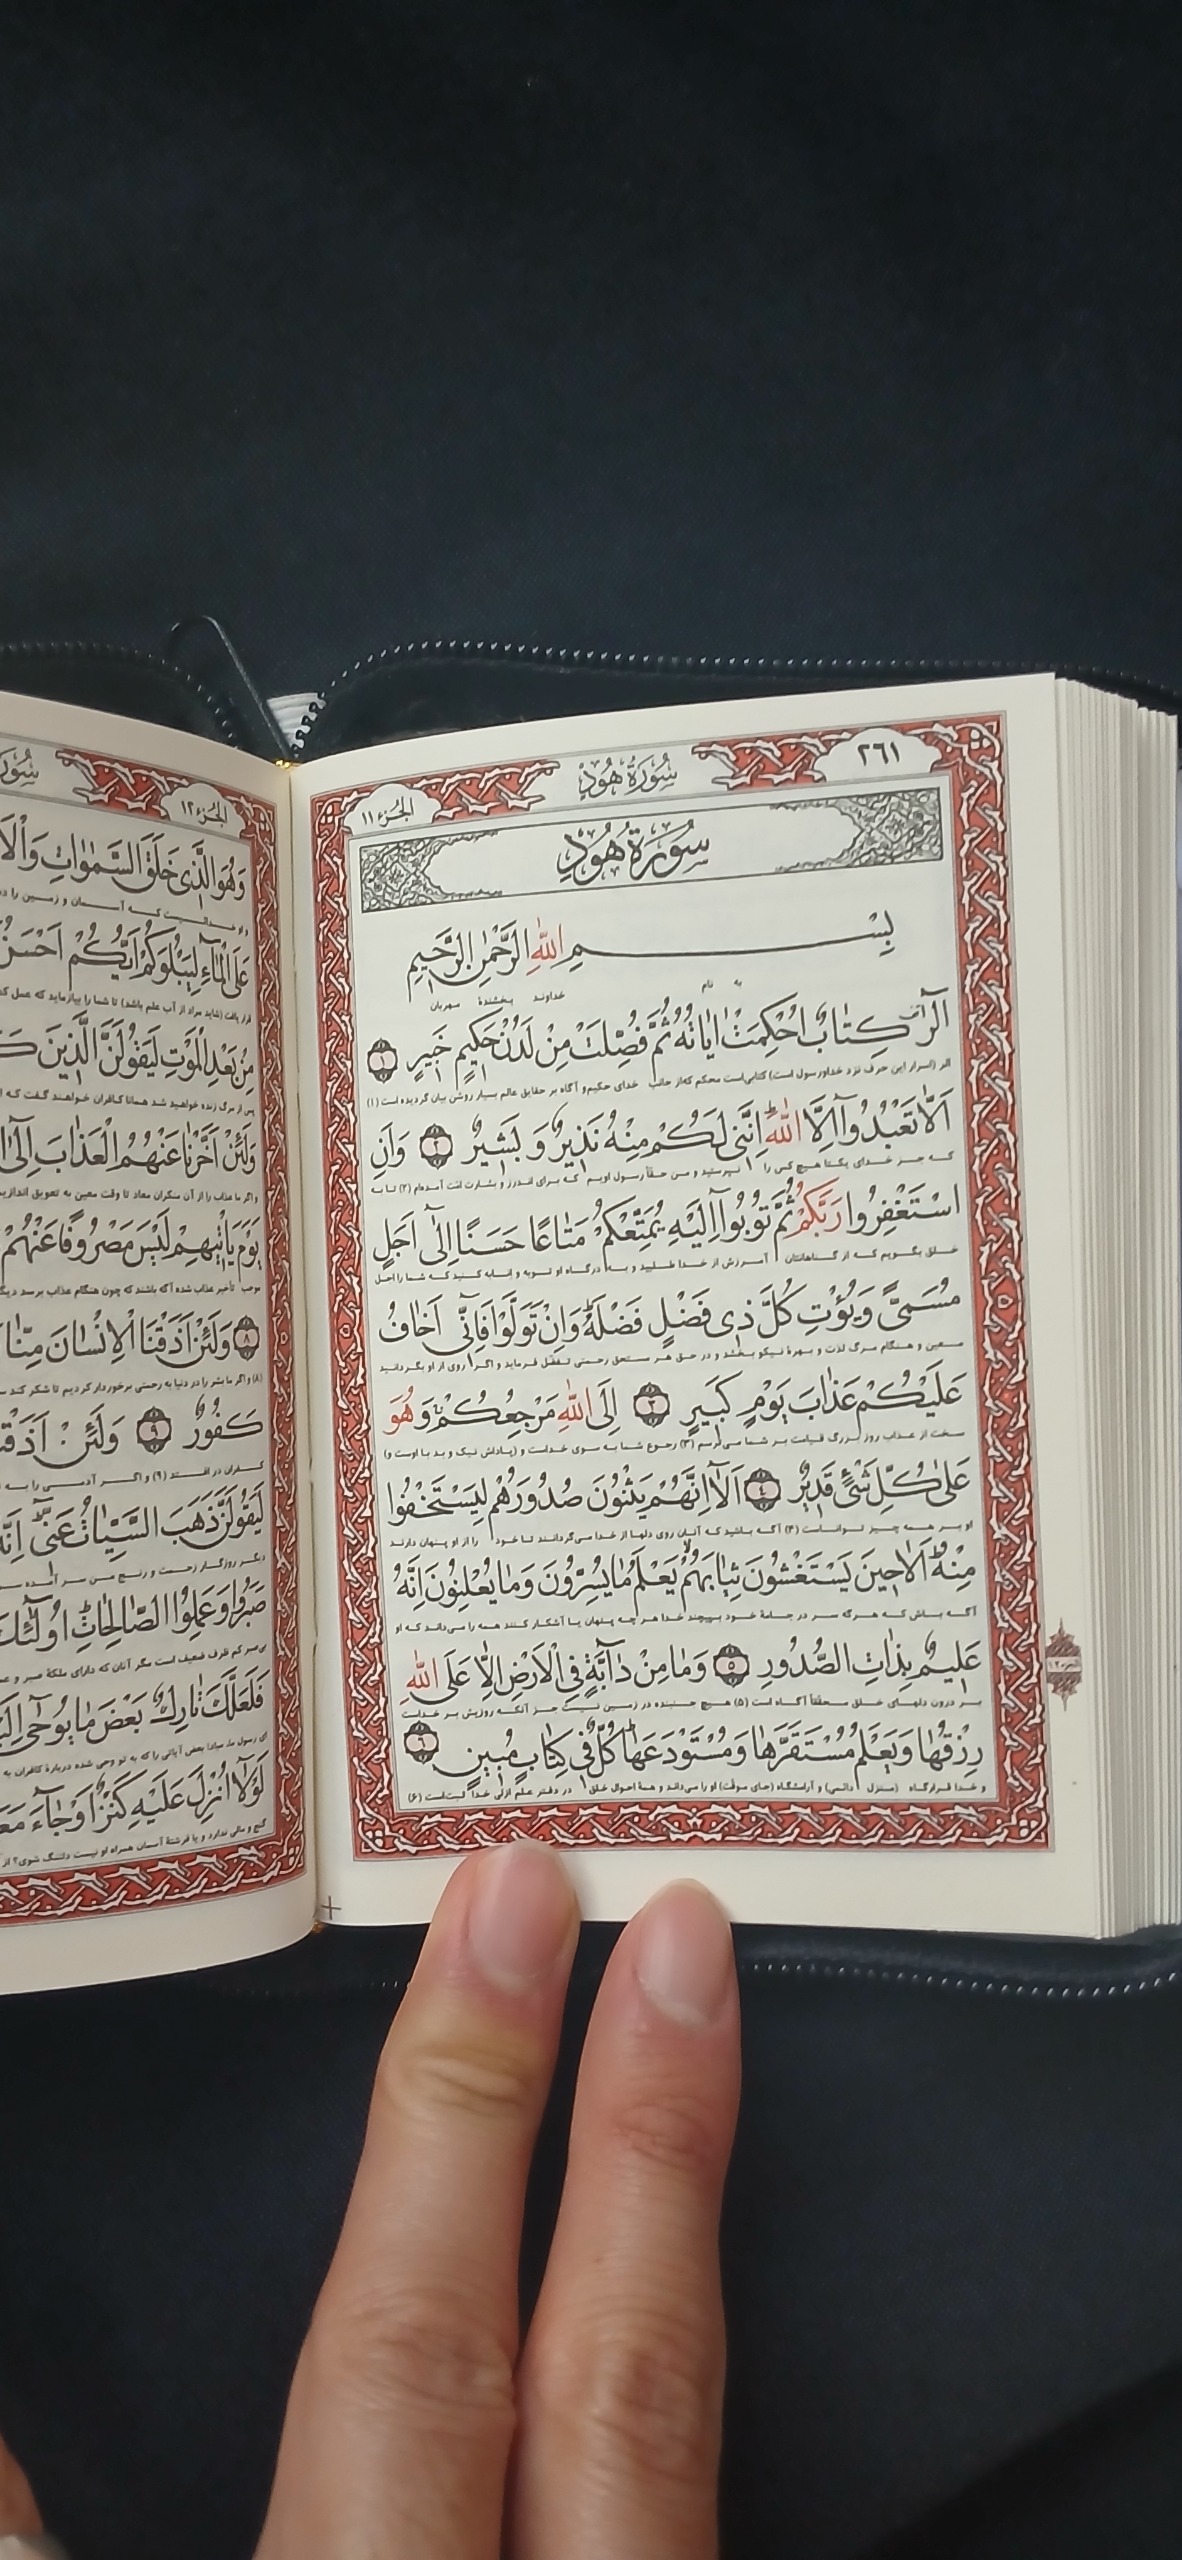 ٢٦١
سُورَةُ هُودٍ
الجُزء ١١
سُورَةُ هُودٍ
بِسْمِ اللّٰهِ الرَّحْمٰنِ الرَّحيمِ
به نام خداوند بخشندهٔ مهربان
الٓرٰ كِتٰابٌ اُحْكِمَتْ اٰيٰاتُهُ ثُمَّ فُصِّلَتْ مِنْ لَدُنْ حَكيمٍ خَبيرٍ ١
الر (اسرار این حرف نزد خداورسول است) کتابی‌است محکم که‌از جانب خدای حکیم‌و آگاه بر حقایق عالم بسیار روشن بیان گردیده است (۱)
اَلّٰا تَعْبُدُوٓا اِلَّا اللّٰهَ اِنَّنى لَكُمْ مِنْهُ نَذيرٌ وَ بَشيرٌ ٢ وَاَنِ
که جز خدای یکتا هیچ کس را نپرستید و من حقاً رسول اویم که برای اندرز و بشارت امّت آمده‌ام (۲) تا به
اسْتَغْفِرُوا رَبَّكُمْ ثُمَّ تُوبُوٓا اِلَيْهِ يُمَتِّعْكُمْ مَتٰاعًا حَسَنًا اِلٰٓى اَجَلٍ
خلق بگویم که از گناهانتان آمرزش از خدا طلبید و به درگاه او توبه و اِنابه کنید که شما را اجل
مُسَمًّى وَيُؤْتِ كُلَّ ذى فَضْلٍ فَضْلَهُ وَاِنْ تَوَلَّوْا فَاِنّٓى اَخٰافُ
معین و هنگام مرگ لذت و بهرهٔ نیکو بخشد و در حق هر مستحق رحمتی تفضّل فرماید و اگر روی از او بگردانید
عَلَيْكُمْ عَذٰابَ يَوْمٍ كَبيرٍ ٣ اِلَى اللّٰهِ مَرْجِعُكُمْ وَهُوَ
سخت از عذاب روز بزرگ قیامت بر شما می‌ترسم (۳) رجوع شما به سوی خداست و (پاداش نیک و بد با اوست و)
عَلٰى كُلِّ شَىْءٍ قَديرٌ ٤ اَلٰٓا اِنَّهُمْ يَثْنُونَ صُدُورَهُمْ لِيَسْتَخْفُوا
او بر همه چیز تواناست (۴) آگه باشید که آنان روی دلها از خدا می‌گردانند تا خود را از او پنهان دارند
مِنْهُ اَلٰا حينَ يَسْتَغْشُونَ ثِيٰابَهُمْ يَعْلَمُ مٰا يُسِرُّونَ وَمٰا يُعْلِنُونَ اِنَّهُ
آگه باش که هرگه سر در جامهٔ خود بپیچند خدا هر چه پنهان یا آشکار کنند همه را می‌داند که او
عَليمٌ بِذٰاتِ الصُّدُورِ ٥ وَمٰا مِنْ دٰٓابَّةٍ فِى الْاَرْضِ اِلّٰا عَلَى اللّٰهِ
بر درون دلهای خلق محققاً آگاه است (۵) هیچ جنبنده در زمین نیست جز آنکه روزیش بر خداست
رِزْقُهٰا وَيَعْلَمُ مُسْتَقَرَّهٰا وَمُسْتَوْدَعَهٰا كُلٌّ فى كِتٰابٍ مُبينٍ ٦
و خدا قرارگاه (منزل دائمی) و آرامشگاه (جای موقت) او را می‌داند و همهٔ احوال خلق در دفتر علم ازلی خدا ثبت‌است (۶)
الجُزء ١٢
وَهُوَ الَّذى خَلَقَ السَّمٰوٰاتِ
عَلَى الْمٰٓاءِ لِيَبْلُوَكُمْ اَيُّكُمْ
مِنْ بَعْدِ الْمَوْتِ لَيَقُولَنَّ الَّذينَ
وَلَئِنْ اَخَّرْنٰا عَنْهُمُ الْعَذٰابَ اِلٰٓى
يَوْمَ يَاْتيهِمْ لَيْسَ مَصْرُوفًا عَنْهُمْ
٨ وَلَئِنْ اَذَقْنَا الْاِنْسٰانَ مِنّٰا
كَفُورٌ ٩ وَلَئِنْ
لَيَقُولَنَّ ذَهَبَ السَّيِّئٰاتُ عَنّى
صَبَرُوا وَعَمِلُوا الصّٰالِحٰاتِ
فَلَعَلَّكَ تٰارِكٌ بَعْضَ مٰا يُوحٰٓى
لَوْلٰٓا اُنْزِلَ عَلَيْهِ كَنْزٌ اَوْ جٰٓاءَ